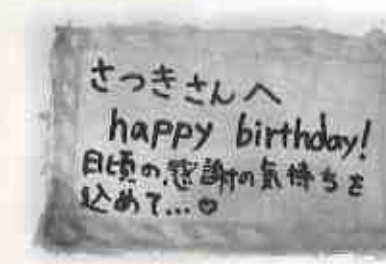 さつきさんへ
happy birthday!
日頃の感謝の気持ちを
込めて...♡